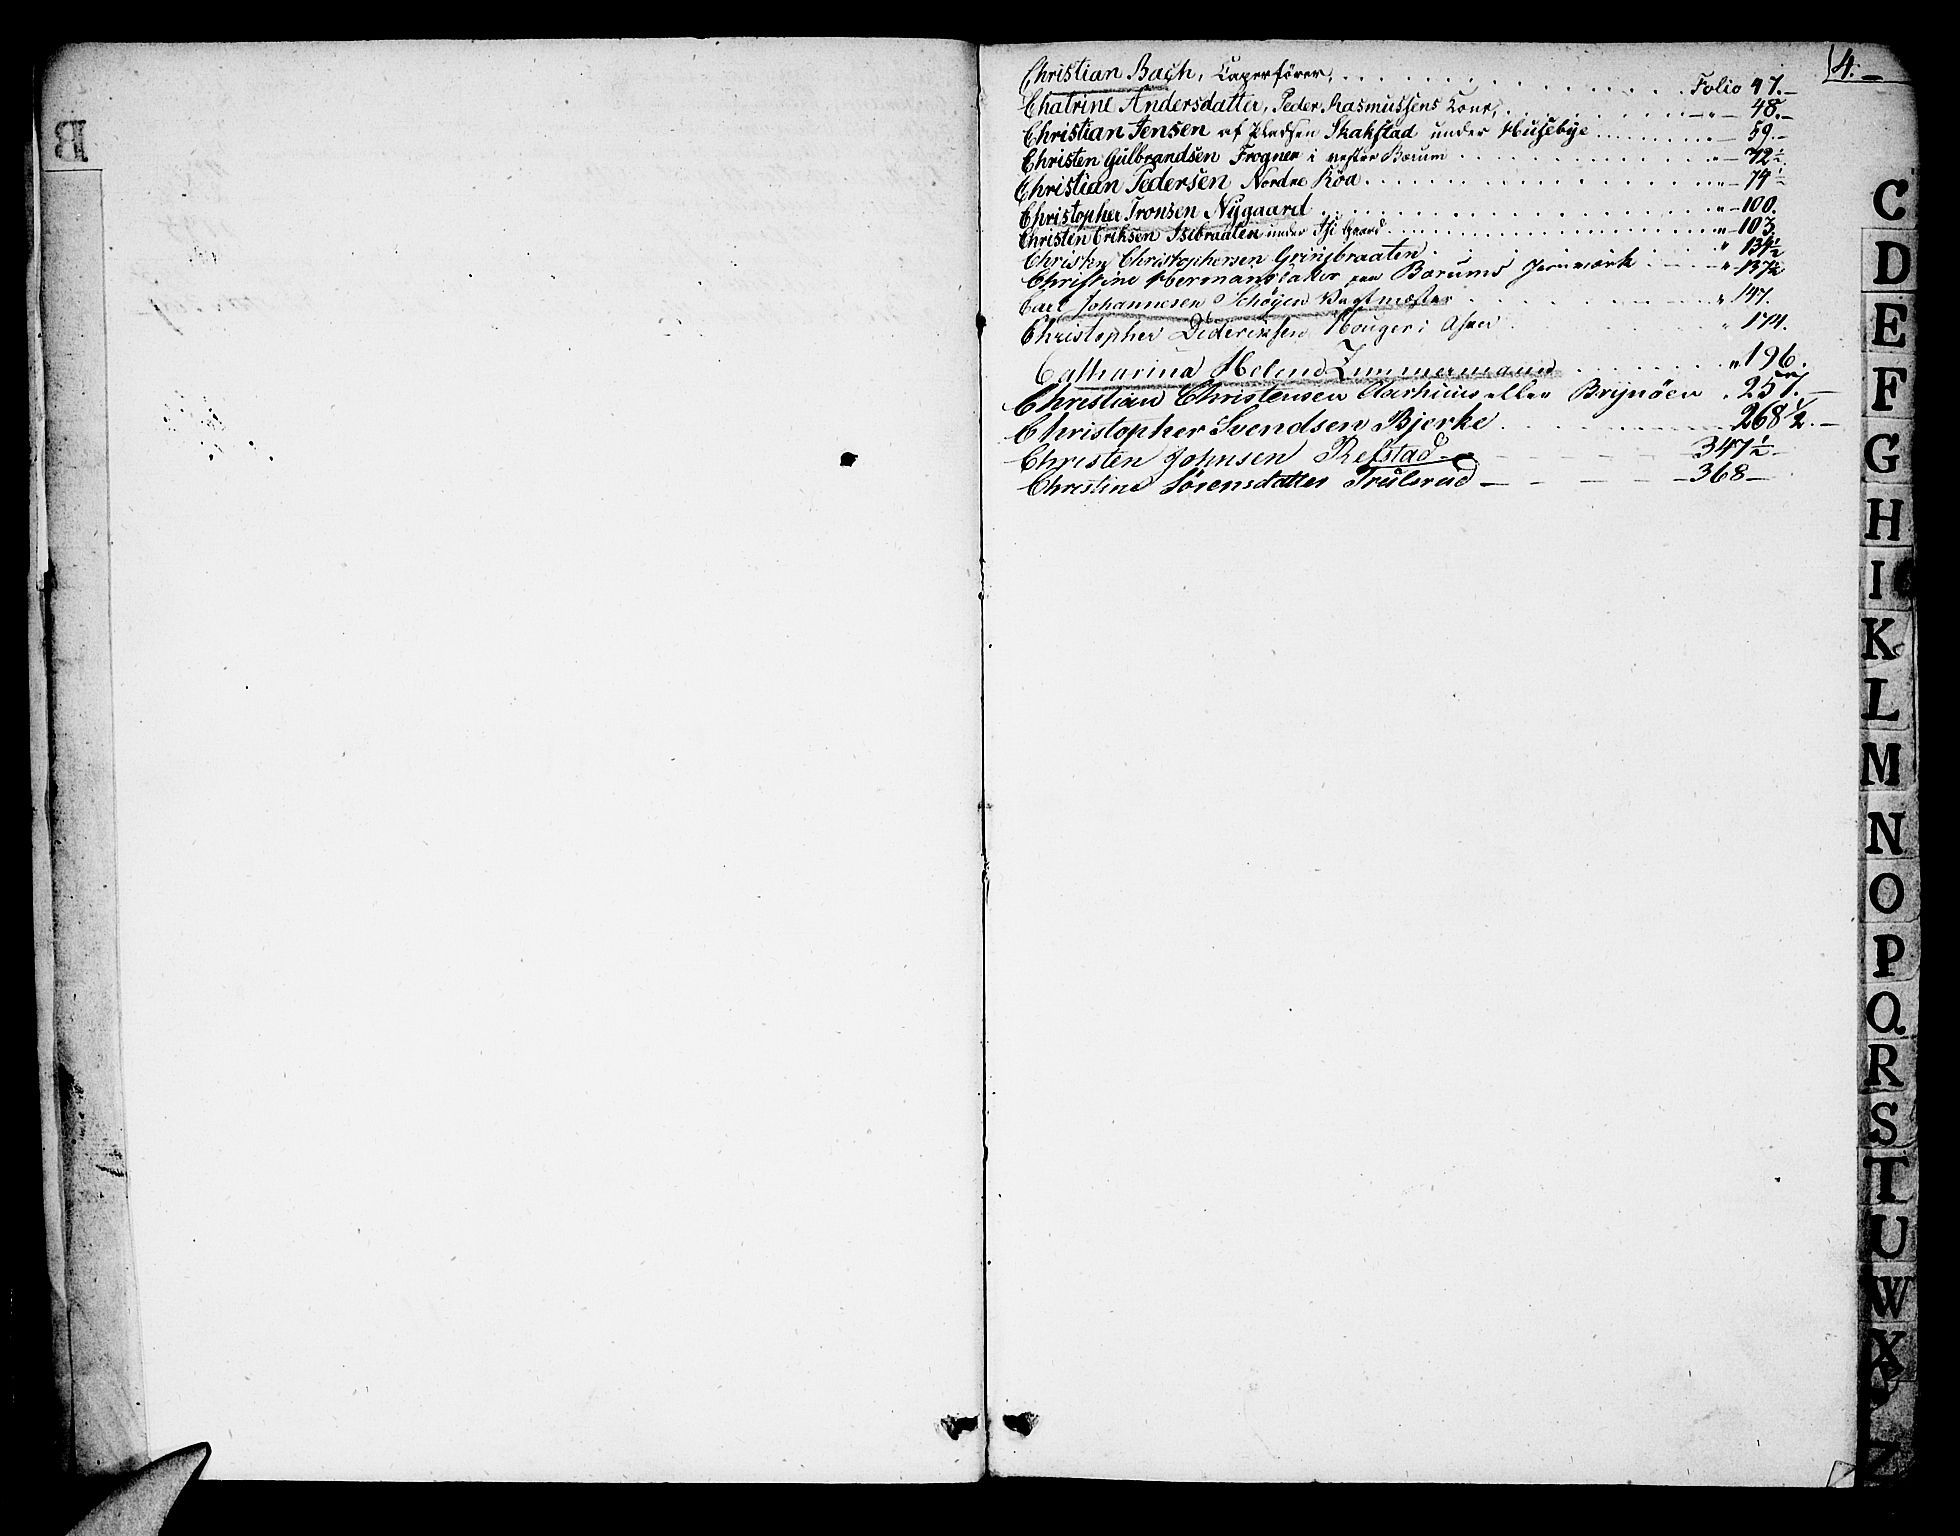 B
4.
Christian Bach, Caperförer, Folio 47.
Chatrine Andersdatter, Peder Rasmussens Kone, 48.
Christian Jensen af Pladsen Skakstad under Husebye 59.
Christen Gulbrandsen Frogner i vester Bærum 72½.
Christian Pedersen Nordre Röa 74½
Christopher Tronsen Nygaard 100.
Christen Eriksen Isibraaten under Gaard 103.
Christen Christophersen Grinibraaten 134½
Christine Hermansdatter paa Bærums Jernværk 137½
Carl Johannesen Schøyen Vagtmæster 147.
Christopher Dideriksen Houger i Asker 174.
Catharina Helene Zimmermann 196.
Christian Christensen Aarhuus eller Brynöen 257.
Christopher Svendsen Bjerke 268½.
Christen Johnsen Refstad 347½
Christine Sörensdatter Trulsrud 368
C
D
E
F
G
H
I
K
L
M
N
O
P
Q
R
S
T
U
W
X
Z